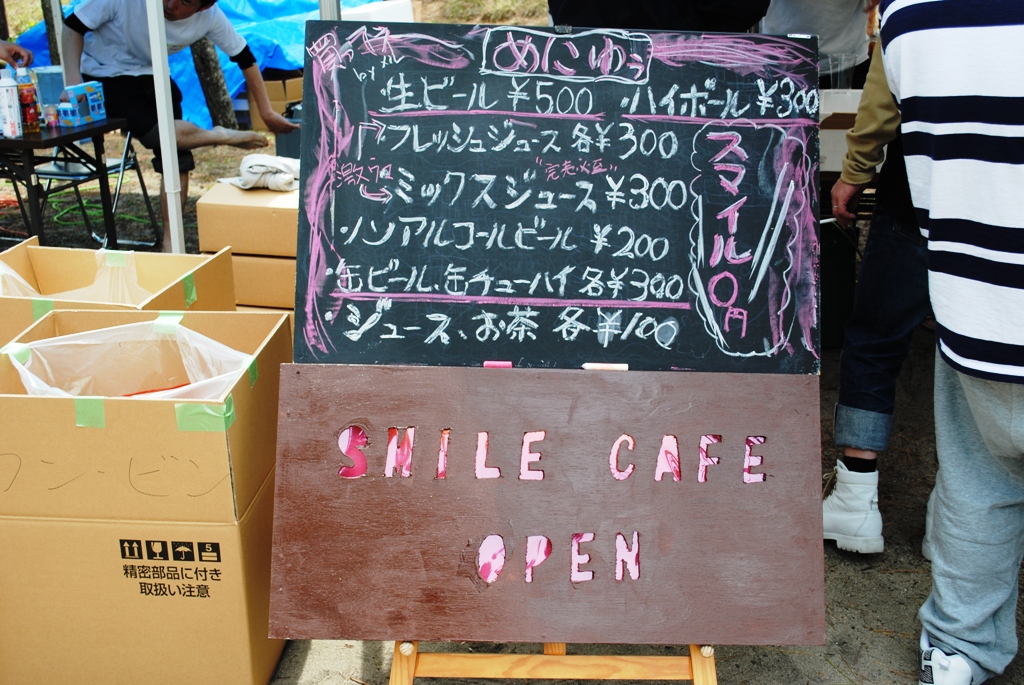 めにゅぅ
・生ビール ¥500 ・ハイボール ¥300
フレッシュジュース 各¥300
激ウマ "完売必至"
ミックスジュース ¥300
・ノンアルコールビール ¥200
・缶ビール、缶チューハイ 各¥300
・ジュース、お茶 各¥100
スマイル0円
SMILE CAFE
OPEN
カン・ビン
精密部品に付き
取扱い注意
5